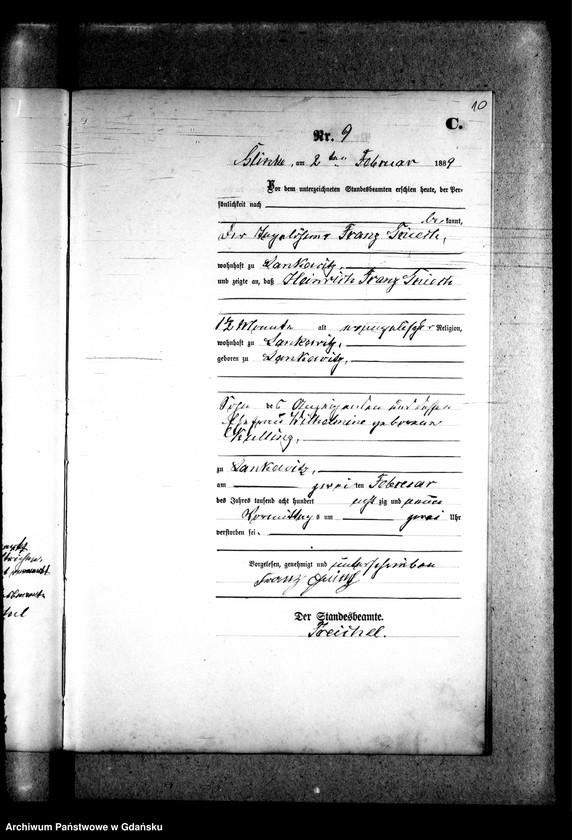 10
C.
Nr. 9
am 2ten Februar 1889
Vor dem unterzeichneten Standesbeamten erschien heute, der Per-
sönlichkeit nach
be kannt,
der Franz
wohnhaft zu Lankewitz,
und zeigte an, daß Heinrich Franz
12 Monate alt evangelischer Religion,
wohnhaft zu Lankewitz,
geboren zu Lankewitz,
Sohn des Anzeigenden und dessen
Ehefrau Wilhelmine geborene
zu Lankewitz,
am zwei ten Februar
des Jahres tausend acht hundert acht zig und neun
Vormittag s um zwei Uhr
verstorben sei.
Vorgelesen, genehmigt und unterschrieben
Franz
Der Standesbeamte.
Treichel.
Archiwum Państwowe w Gdańsku